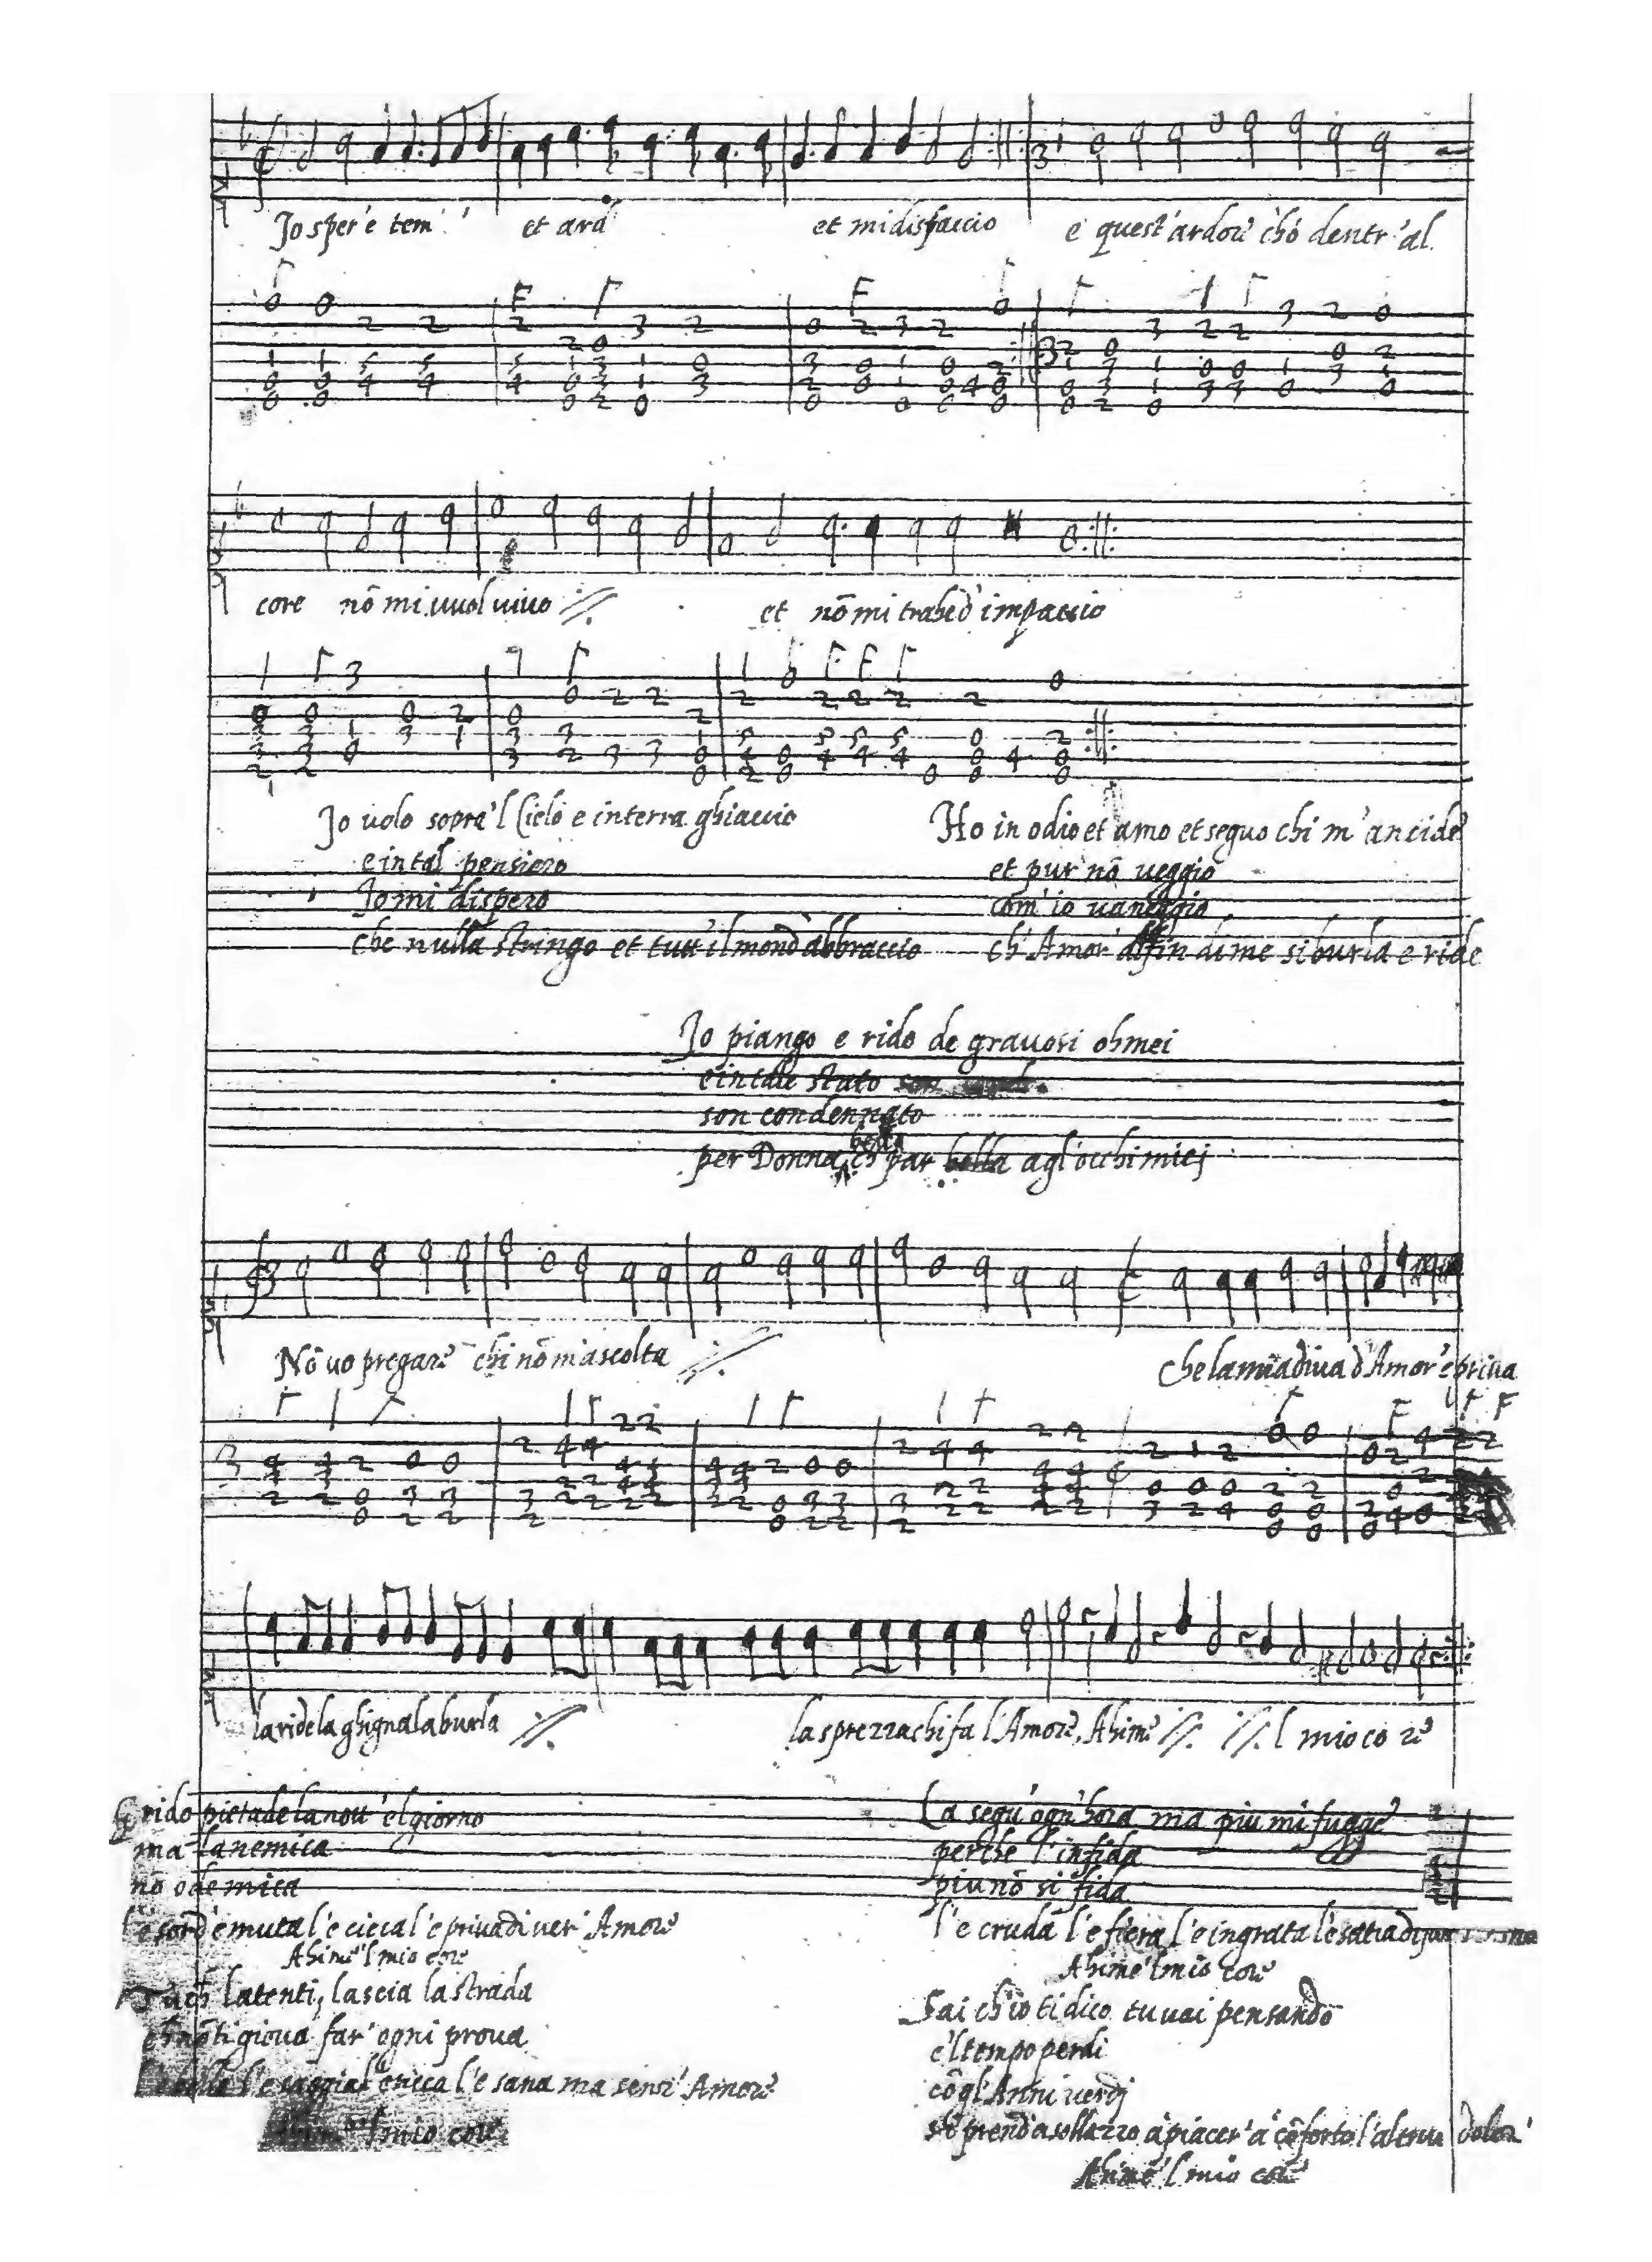 Jo sper'e tem' et ard' et mi disfaccio e quest'ardor' ch'ó dentr'al
core nō mi vuol vivo et nō mi trahe d'impaccio
Jo volo sopra'l Cielo e in terra ghiaccio
e in tal pensiero
Jo mi dispero
che nulla stringo et tutt'il mond'abbraccio
Ho in odio et amo et seguo chi m'ancide
et pur nō veggio
com'io vaneggio
ch'Amor' alfin di me si burla e ride
Jo piango e rido de gravosi ohmei
e in tale stato
son condennato
per Donna ch' par bella agl'occhi miej
Nō vo pregare chi nō m'ascolta che la mia diva d'Amor' è priva
la ride la ghigna la burla la sprezza chi fa l'Amore, Ahime l mio core
Grido pietade la nott' el giorno
ma la nemica
nō ode mica
l'e sord'e muta l'e cieca l'e priva di ver' Amore
Ahime'l mio core
latenti, lascia la strada
ch' nō ti giova far' ogni prova
l'e bella l'e saggia l'e ricca l'e sana ma senz'Amore
Ahime'l mio core
La segu'ogn'hora ma piu mi fugge
perche l'infida
piu nō si fida
l'e cruda l'e fiera l'e ingrata l'e
Ahime'l mio core
Sai ch'io ti dico tu vai pensando
e'l tempo perdi
cō gl'Anni verdj
prend'a sollazzo a piacer'a cōforto l'altrui dolor'
Ahime'l mio core